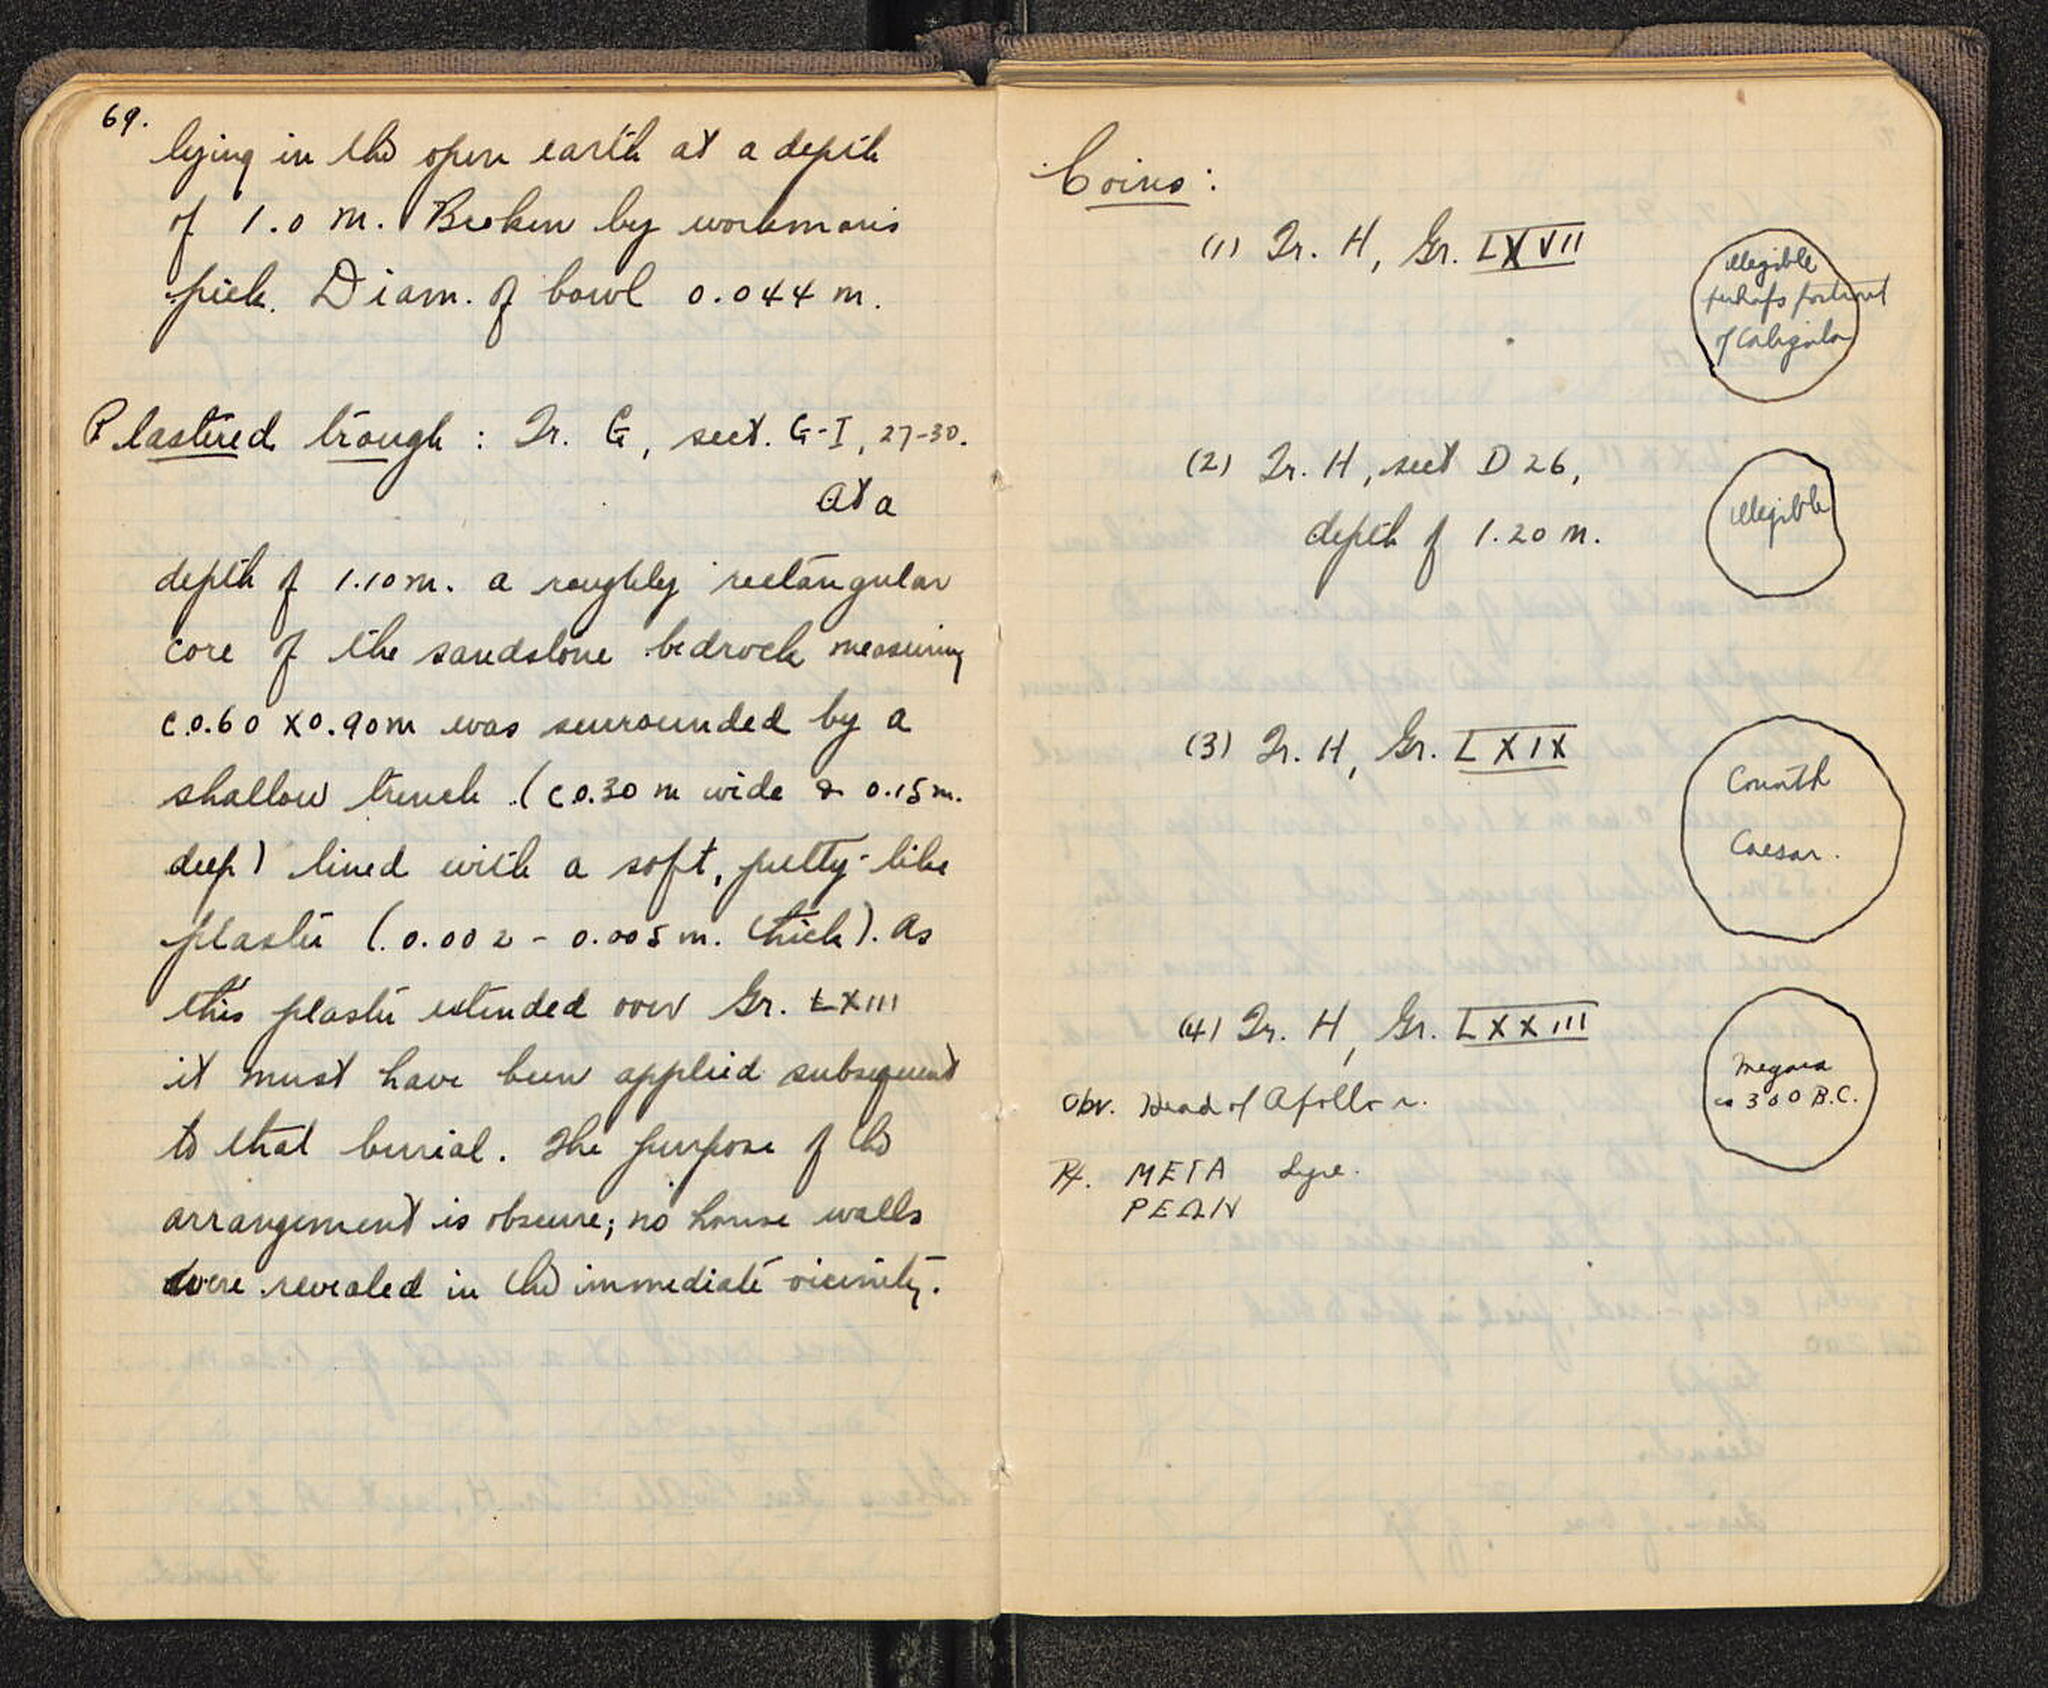 69.
lying in the open earth at a depth
of 1.0 m. Broken by workman's
pick. Diam. of bowl 0.044 m.
Plastered trough : Tr. G, sect. G-I, 27-30.
At a
depth of 1.10 m. a roughly rectangular
core of the sandstone bedrock measuring
c 0.60 x 0.90 m was surrounded by a
shallow trench (c 0.30 m wide & 0.15 m.
deep) lined with a soft, putty-like
plaster (0.002 - 0.005 m. thick). As
this plaster extended over Gr. LXIII
it must have been applied subsequent
to that burial. The purpose of the
arrangement is obscure; no house walls
were revealed in the immediate vicinity.
Coins :
(1) Tr. H, Gr. LXVII
illegible
perhaps portrait
of Caligula
(2) Tr. H, sect D 26,
depth of 1.20 m.
illegible
(3) Tr. H, Gr. LXIX
Corinth
Caesar.
(4) Tr. H, Gr. LXXIII
Megara
ca 300 B.C.
Obv. Head of Apollo r.
Rx. ΜΕΓΑ Lyre.
ΡΕΩΝ